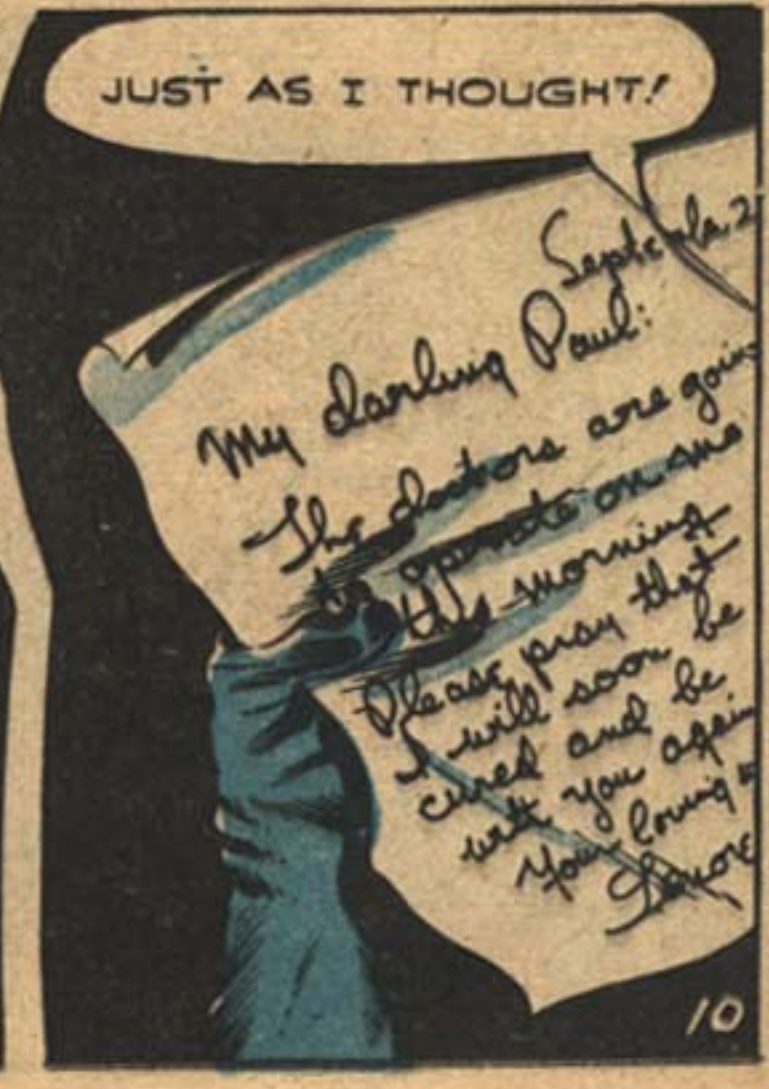 JUST AS I THOUGHT!
My darling Paul:
The doctors are goin
to operate on me
this morning
Please pray that
I will soon be
cured and be
with you again
Your loving
Lenore
10